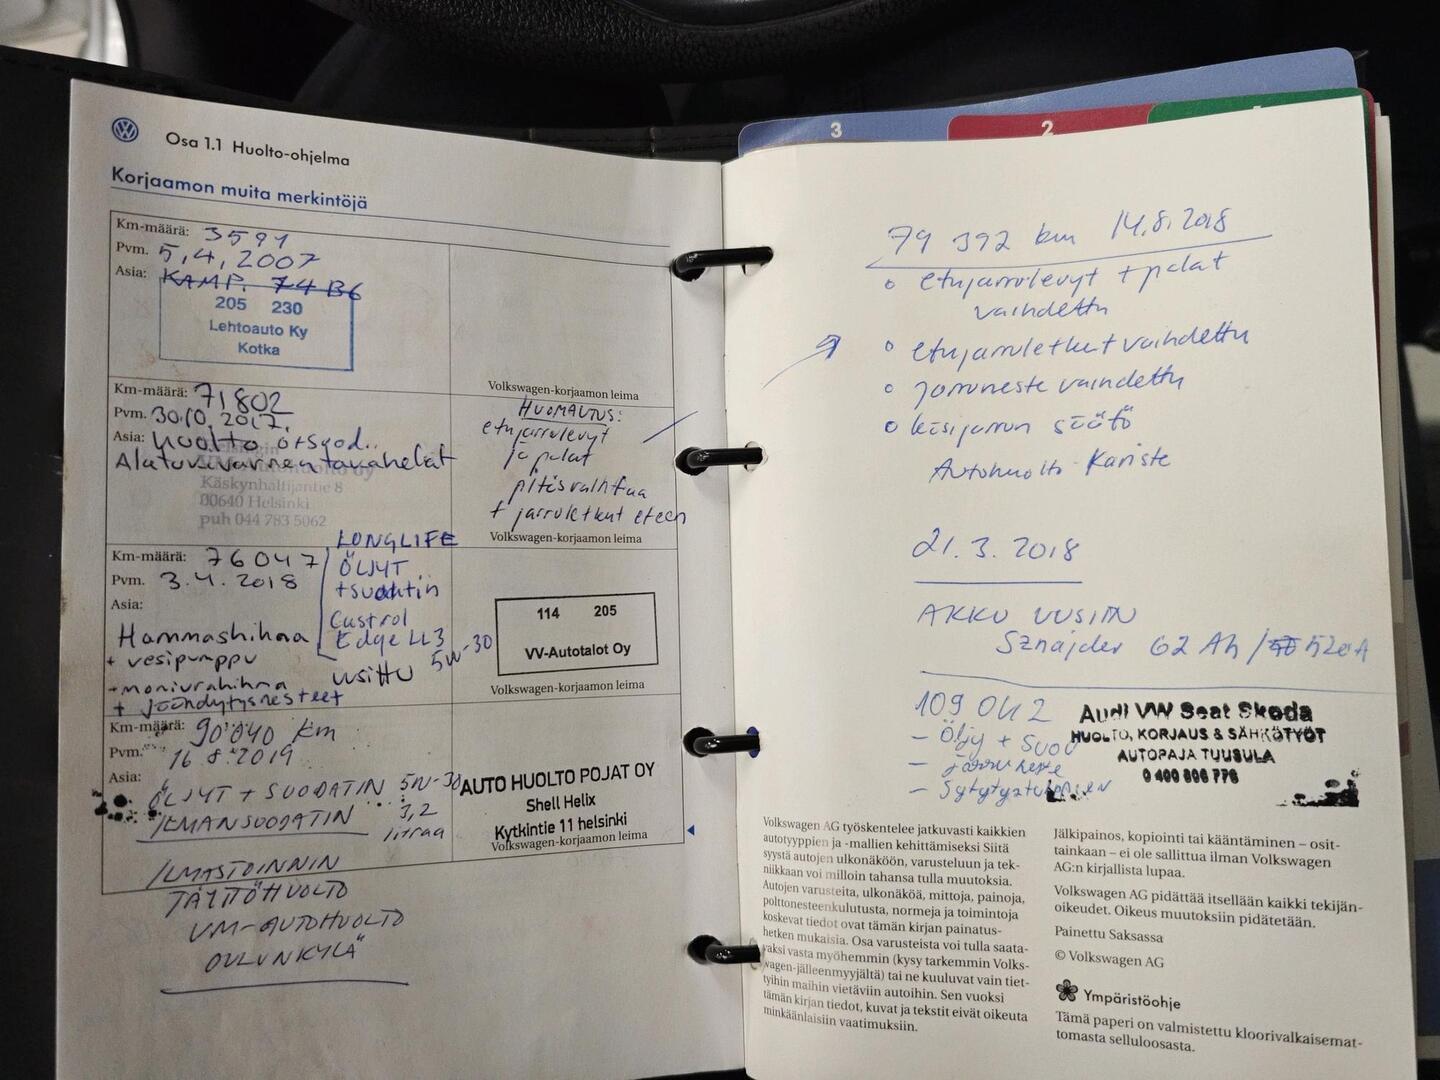 Osa 1.1 Huolto-ohjelma
Korjaamon muita merkintöjä
Km-määrä: 3591
Pvm. 5.4.2007
Asia: KAMP. 74 B6
205 230
Lehtoauto Ky
Kotka
Volkswagen-korjaamon leima
Km-määrä: 71802
Pvm. 30.10.2017.
Asia: Huolto
Alatukivarren
Käskynhaltijantie 8
00640 Helsinki
puh 044 783 5062
HUOMAUTUS:
etujarrulevyt
ja palat
pitäs vaihtaa
+ jarruletkut eteen
Volkswagen-korjaamon leima
Km-määrä: 76047
Pvm. 3.4.2018
Asia:
Hammashihna
+ vesipumppu
+ moniurahihna
+ jäähdytysnesteet
LONGLIFE
ÖLJYT
+ suodatin
Castrol
Edge LL3
5W-30
114 205
VV-Autotalot Oy
Volkswagen-korjaamon leima
Km-määrä: 90'040 km
Pvm. 16.8.2019
Asia:
ÖLJYT + SUODATIN 5W-30
ILMANSUODATIN 3,2
litraa
AUTO HUOLTO POJAT OY
Shell Helix
Kytkintie 11 helsinki
Volkswagen-korjaamon leima
ILMASTOINNIN
TÄYTTÖHUOLTO
VM-AUTOHUOLTO
OULUNKYLÄ
3
2
79 392 km 14.8.2018
o etujarrulevyt + palat
vaihdettu
o etujarruletkut vaihdettu
o jarruneste vaihdettu
o käsijarrun säätö
Autohuolto Kariste
21.3.2018
AKKU UUSITTIIN
Sznajder 62 Ah / 520A
109 042
- Öljy + suod
- Jarruneste
Audi VW Seat Skoda
HUOLTO, KORJAUS & SÄHKÖTYÖT
AUTOPAJA TUUSULA
Volkswagen AG työskentelee jatkuvasti kaikkien
autotyyppien ja -mallien kehittämiseksi Siitä
syystä autojen ulkonäköön, varusteluun ja tek-
niikkaan voi milloin tahansa tulla muutoksia.
Autojen varusteita, ulkonäköä, mittoja, painoja,
polttonesteenkulutusta, normeja ja toimintoja
koskevat tiedot ovat tämän kirjan painatus-
hetken mukaisia. Osa varusteista voi tulla saata-
vaksi vasta myöhemmin (kysy tarkemmin Volks-
wagen-jälleenmyyjältä) tai ne kuuluvat vain tiet-
tyihin maihin vietäviin autoihin. Sen vuoksi
tämän kirjan tiedot, kuvat ja tekstit eivät oikeuta
minkäänlaisiin vaatimuksiin.
Jälkipainos, kopiointi tai kääntäminen – osit-
tainkaan – ei ole sallittua ilman Volkswagen
AG:n kirjallista lupaa.
Volkswagen AG pidättää itsellään kaikki tekijän-
oikeudet. Oikeus muutoksiin pidätetään.
Painettu Saksassa
© Volkswagen AG
Ympäristöohje
Tämä paperi on valmistettu kloorivalkaisemat-
tomasta selluloosasta.